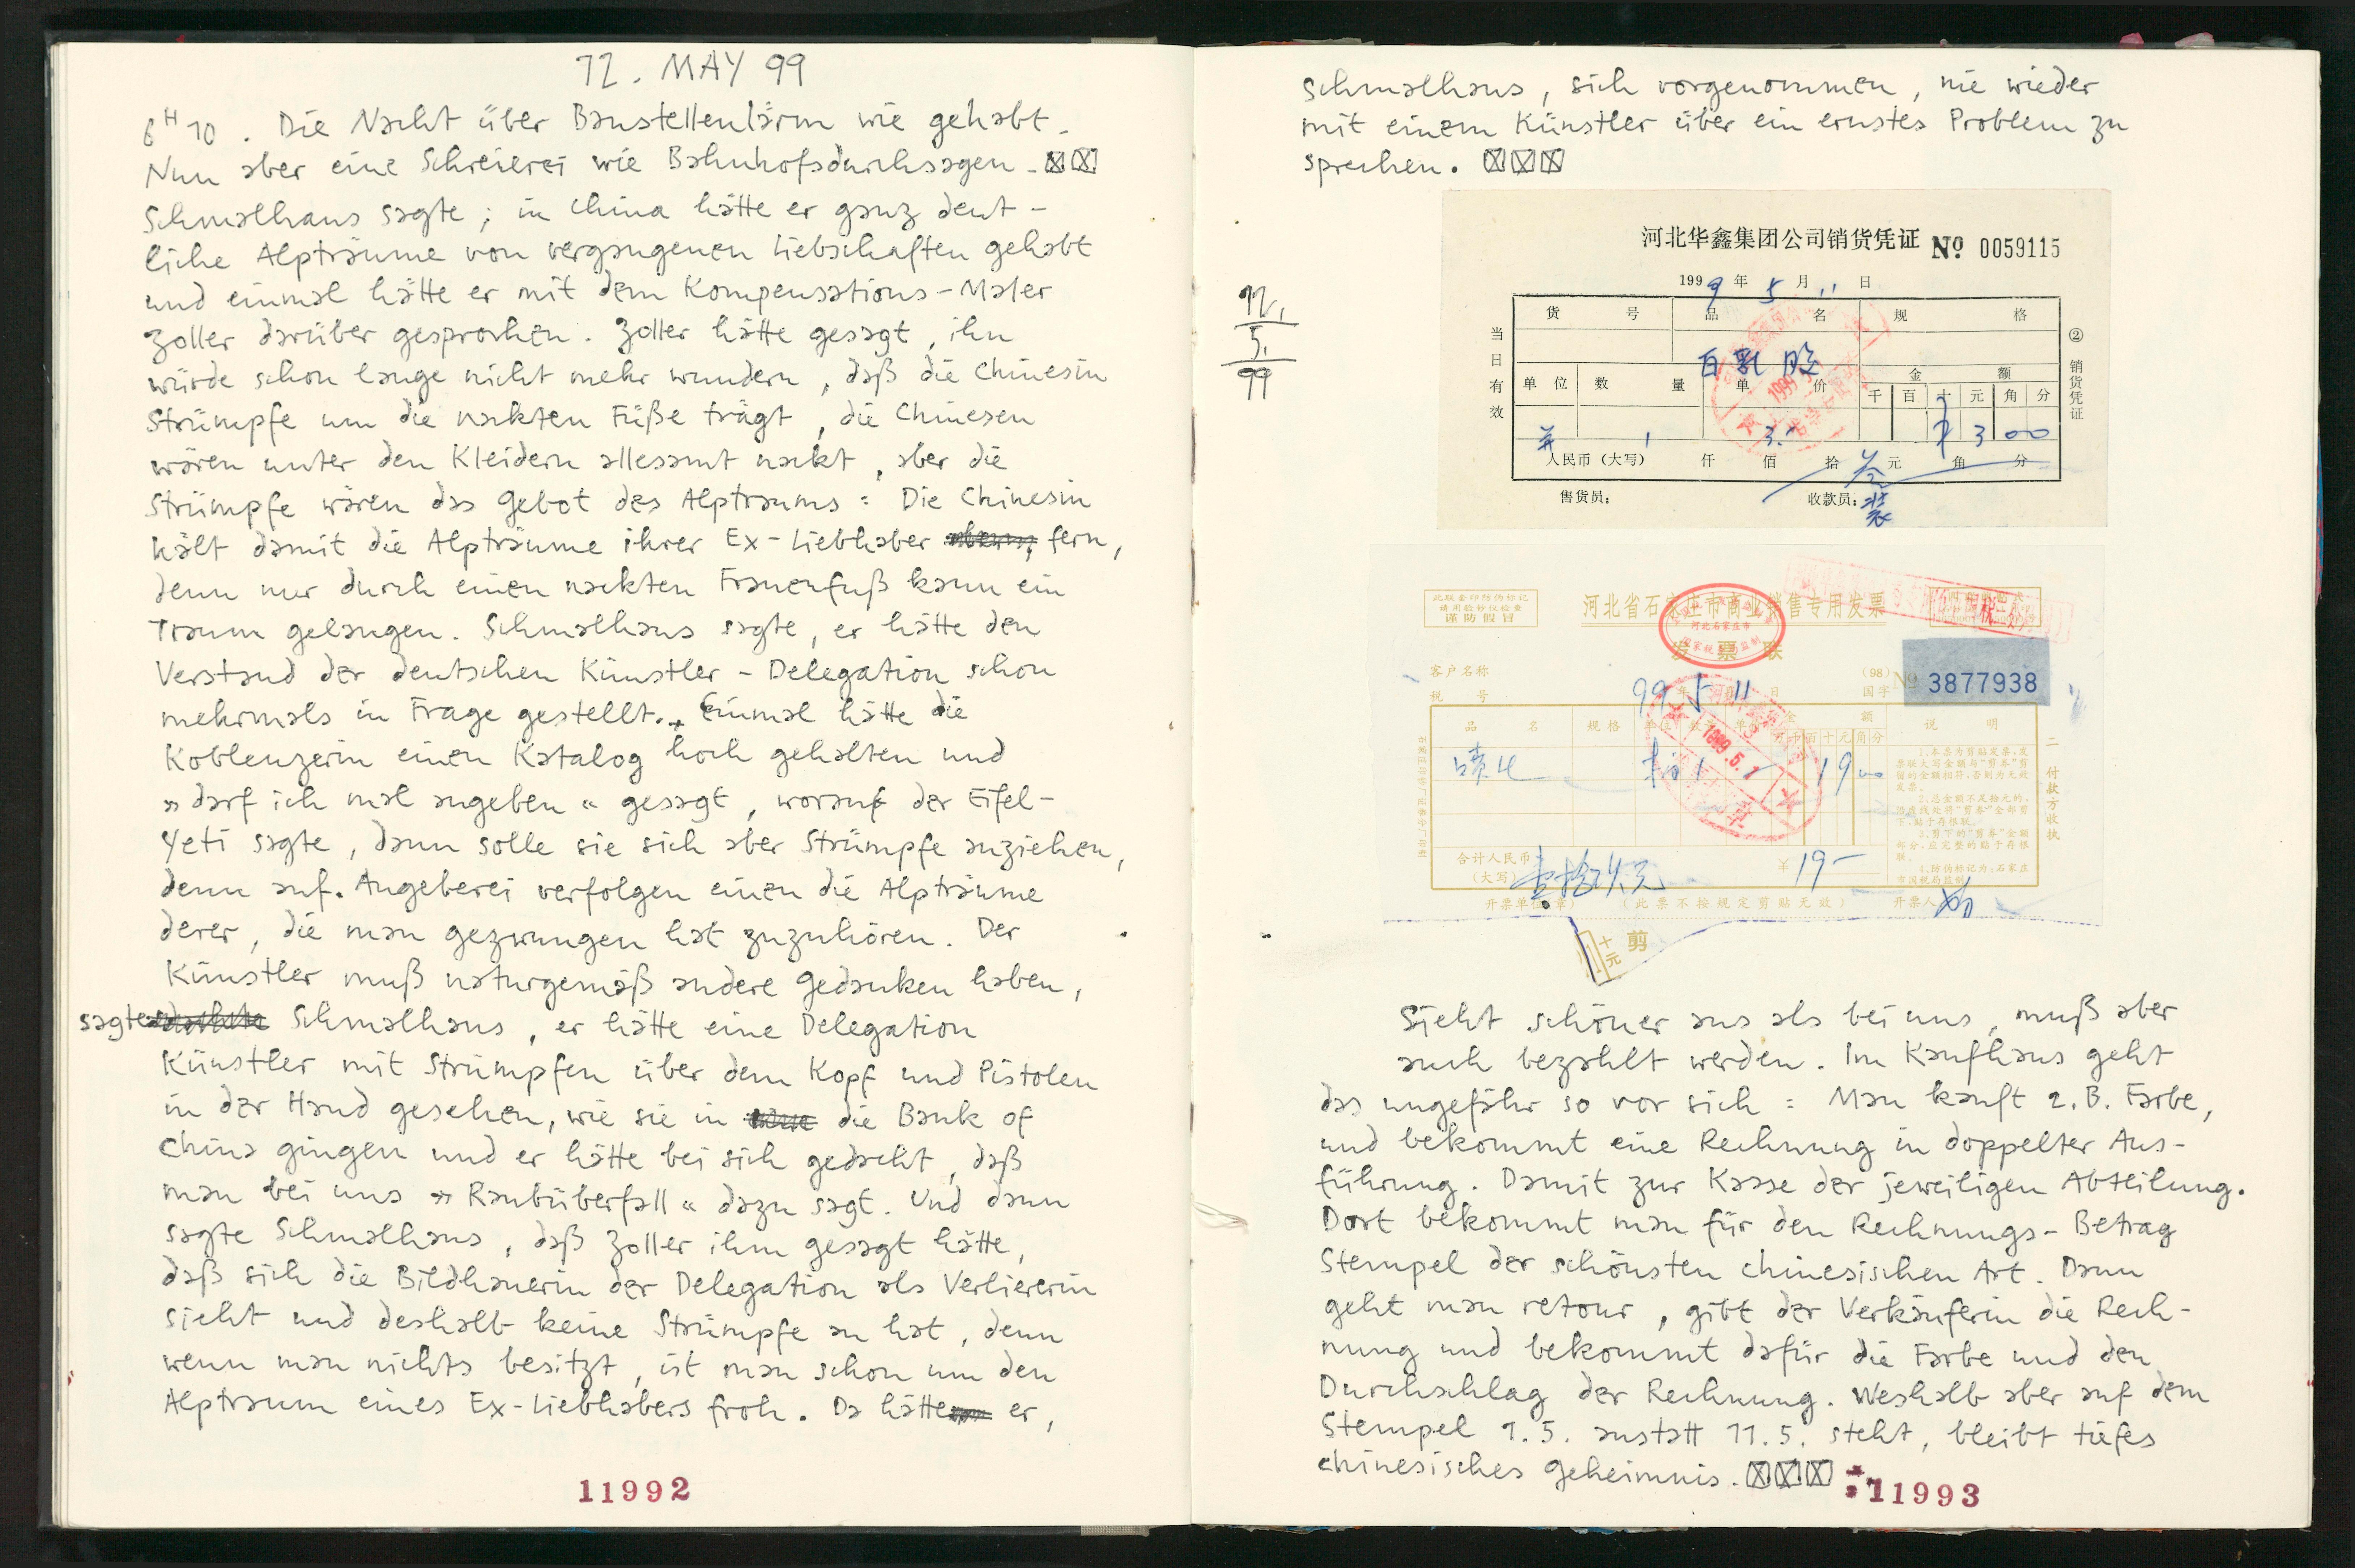 12. MAY 99
6H10. Die Nacht über Baustellenlärm wie gehabt.
Nun aber eine Schreierei wie Bahnhofsdurchsagen.
Schmalhans sagte; in China hätte er ganz deut-
liche Alpträume von vergangenen Liebschaften gehabt
und einmal hätte er mit dem Kompensations-Maler
Zoller darüber gesprochen. Zoller hätte gesagt, ihn
würde schon lange nicht mehr wundern, daß die Chinesin
Strümpfe um die nackten Füße trägt, die Chinesen
wären unter den Kleidern allesamt nackt, aber die
Strümpfe wären das Gebot des Alptraums: Die Chinesin
hält damit die Alpträume ihrer Ex-Liebhaber fern,
denn nur durch einen nackten Frauenfuß kann ein
Traum gelangen. Schmalhans sagte, er hätte den
Verstand der deutschen Künstler-Delegation schon
mehrmals in Frage gestellt. Einmal hätte die
Koblenzerin einen Katalog hoch gehalten und
»darf ich mal angeben« gesagt, worauf der Eifel-
Yeti sagte, dann solle sie sich aber Strümpfe anziehen,
denn auf Angeberei verfolgen einen die Alpträume
derer, die man gezwungen hat zuzuhören. Der
Künstler muß naturgemäß andere Gedanken haben,
sagte Schmalhans, er hätte eine Delegation
Künstler mit Strümpfen über dem Kopf und Pistolen
in der Hand gesehen, wie sie in die Bank of
China gingen und er hätte bei sich gedacht, daß
man bei uns »Raubüberfall« dazu sagt. Und dann
sagte Schmalhans, daß Zoller ihm gesagt hätte,
daß sich die Bildhauerin der Delegation als Verliererin
sieht und deshalb keine Strümpfe an hat, denn
wenn man nichts besitzt, ist man schon um den
Alptraum eines Ex-Liebhabers froh. Da hätte er,
11992
Schmalhans, sich vorgenommen, nie wieder
mit einem Künstler über ein ernstes Problem zu
sprechen.
12.
5.
99
河北华鑫集团公司销货凭证 Nº 0059115
1999年5月11日
货号 品名 规格
白乳胶
单位 数量 单价 金额
千 百 十 元 角 分
1 3.- ¥ 3 00
人民币（大写） 仟 佰 拾 叁元 角 分
售货员： 收款员：
当日有效
② 销货凭证
1999
此联套印防伪标记
请用验钞仪检查
谨防假冒
河北省石家庄市商业销售专用发票
发票联
客户名称
税号
99年5月11日
(98)
国字
Nº 3877938
品名 规格 单位 数量 单价 金额 说明
百十元角分
1 19 00
1999.5.1
1.本票为剪贴发票，发
票联大写金额与“剪券”剪
留的金额相符，否则为无效
发票。
合计人民币
（大写） 壹拾玖元 ¥ 19-
开票单位（章） （此票不按规定剪贴无效） 开票人
二 付款方收执
十元 剪
Sieht schöner aus als bei uns, muß aber
auch bezahlt werden. Im Kaufhaus geht
das ungefähr so vor sich: Man kauft z.B. Farbe,
und bekommt eine Rechnung in doppelter Aus-
führung. Damit zur Kasse der jeweiligen Abteilung.
Dort bekommt man für den Rechnungs-Betrag
Stempel der schönsten chinesischen Art. Dann
geht man retour, gibt der Verkäuferin die Rech-
nung und bekommt dafür die Farbe und den
Durchschlag der Rechnung. Weshalb aber auf dem
Stempel 1.5. anstatt 11.5. steht, bleibt tiefes
chinesisches Geheimnis.
11993